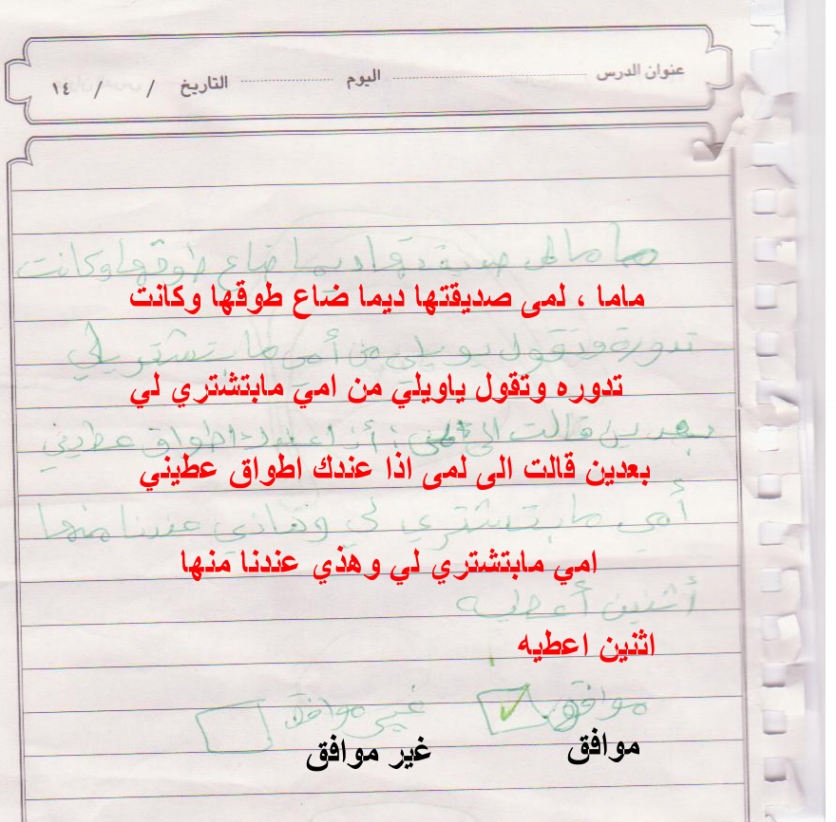 عنوان الدرس اليوم التاريخ / / ١٤
ماما لمى صديقتها ديما ضاع طوقها وكانت
ماما ، لمى صديقتها ديما ضاع طوقها وكانت
تدورة وتقول يويلي من أمي ما تشتريلي
تدوره وتقول ياويلي من امي مابتشتري لي
بعدين قالت الى لمى: أذا عندك اطواق عطيني
بعدين قالت الى لمى اذا عندك اطواق عطيني
أمي مابتشتري لي وهاذي عندنا منها
امي مابتشتري لي وهذي عندنا منها
أثنين أعطيه
اثنين اعطيه
موافق غير موافق
موافق غير موافق